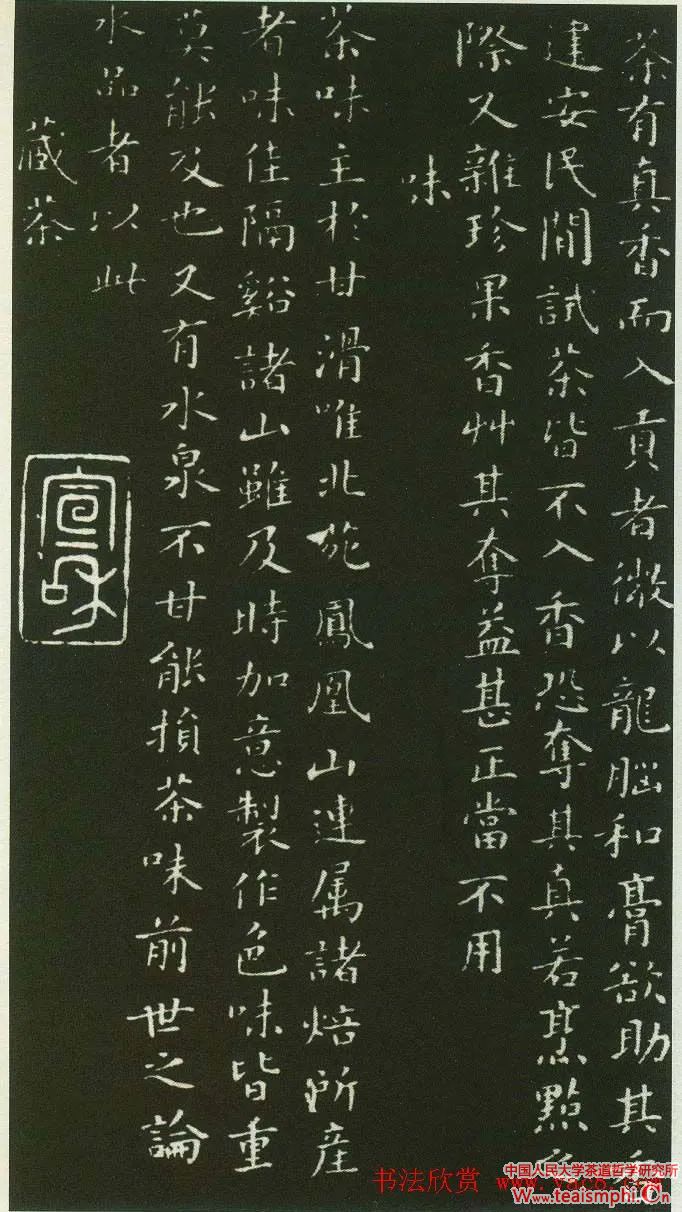 茶有真香而入貢者微以龍腦和膏欲助其香
建安民間試茶皆不入香恐奪其真若烹點之
際又雜珍果香艸其奪益甚正當不用
味
茶味主於甘滑唯北苑鳳凰山連属諸焙所產
者味佳隔谿諸山雖及時加意製作色味皆重
莫能及也又有水泉不甘能損茶味前世之論
水品者以此
藏茶
宣和
书法欣赏
中国人民大学茶道哲学研究所
www.teaismphi.cn